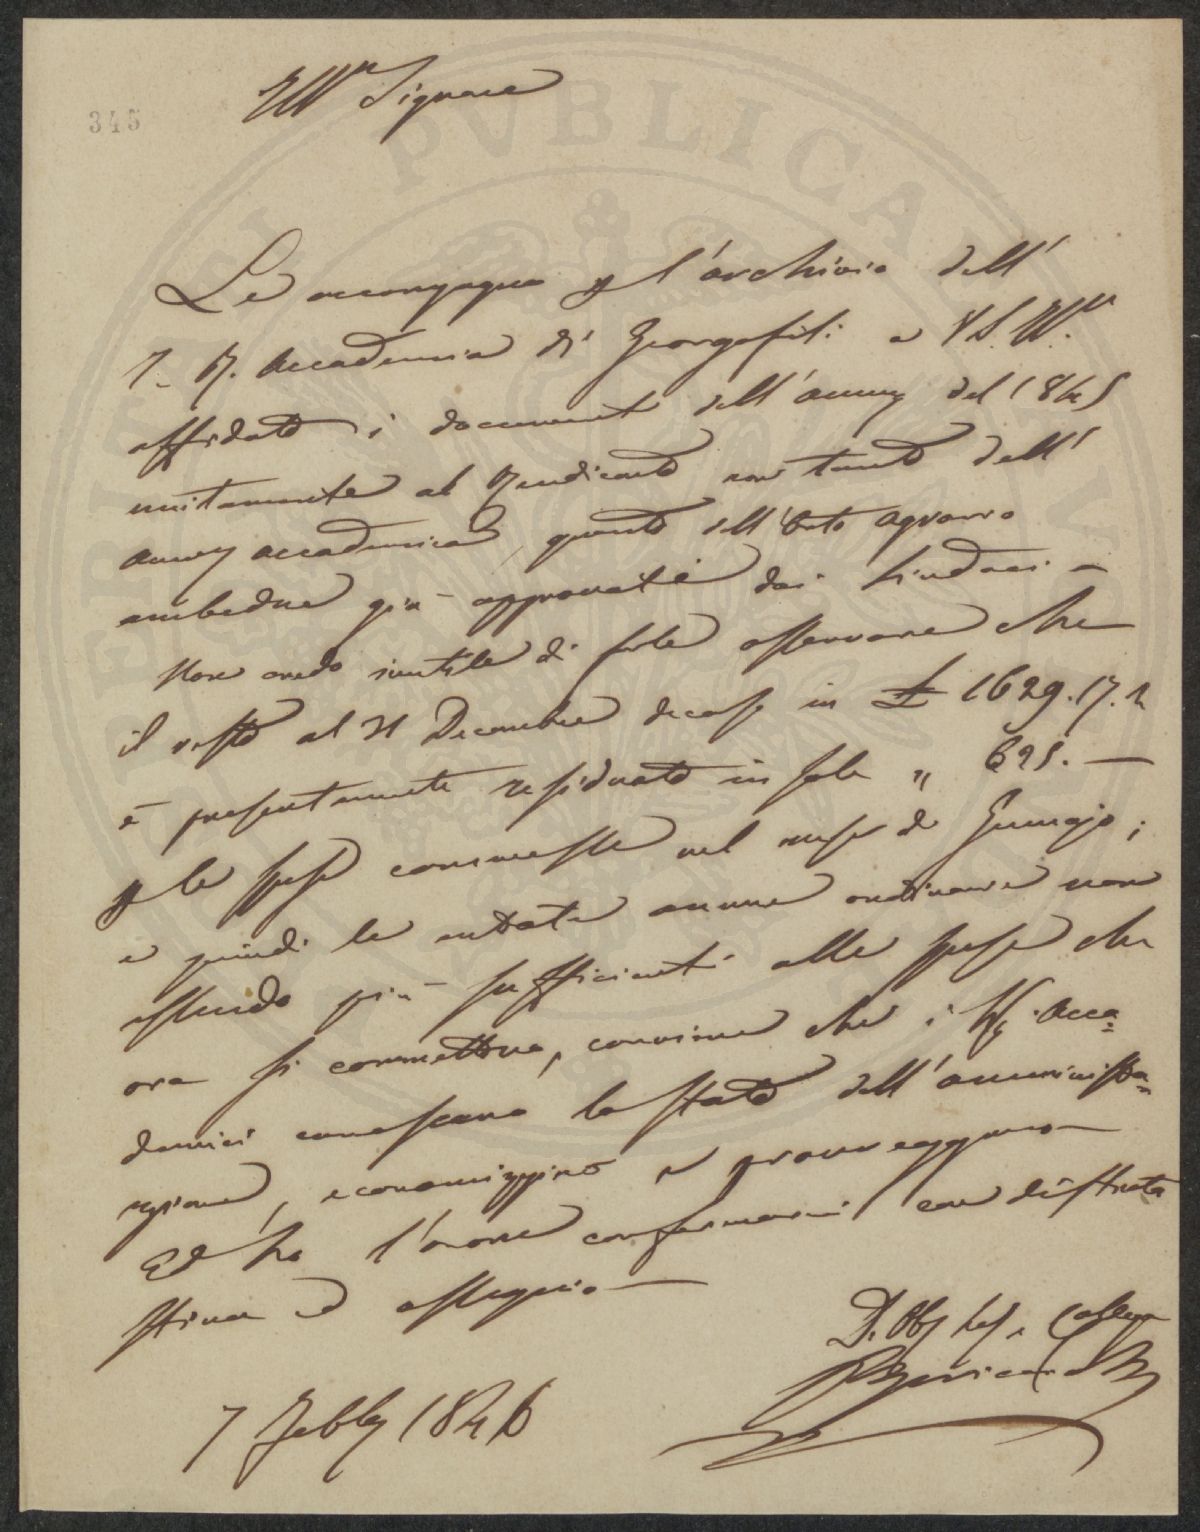 345
Ill.mo Signore
Le accompagno p l'archivio dell'
I. R. Accademia di Georgofili a VS. Ill.ma
affidato i documenti dell'anno del 1845
unitamente al Rendiconto non tanto dell'
anno accademico, quanto dell'Orto agrario
ambedue già approvati dai Sindaci -
Non credo inutile di farle osservare che
il resto al 31 Decembre decorso in £ 1629.17.2
è presentemente residuato in sole " 625. —
p le spese commesse nel mese di Gennajo;
e quindi le entrate annue ordinarie non
essendo più sufficienti alle spese che
ora si commettono, conviene che i SS.i Acca=
demici conoscano lo stato dell'amministra=
zione, economizzino e provveggano —
Ed ho l'onore confermarmi con distinta
stima ed ossequio —
D. Obb Ser e Collega
7 Febb 1846
PVBLICA